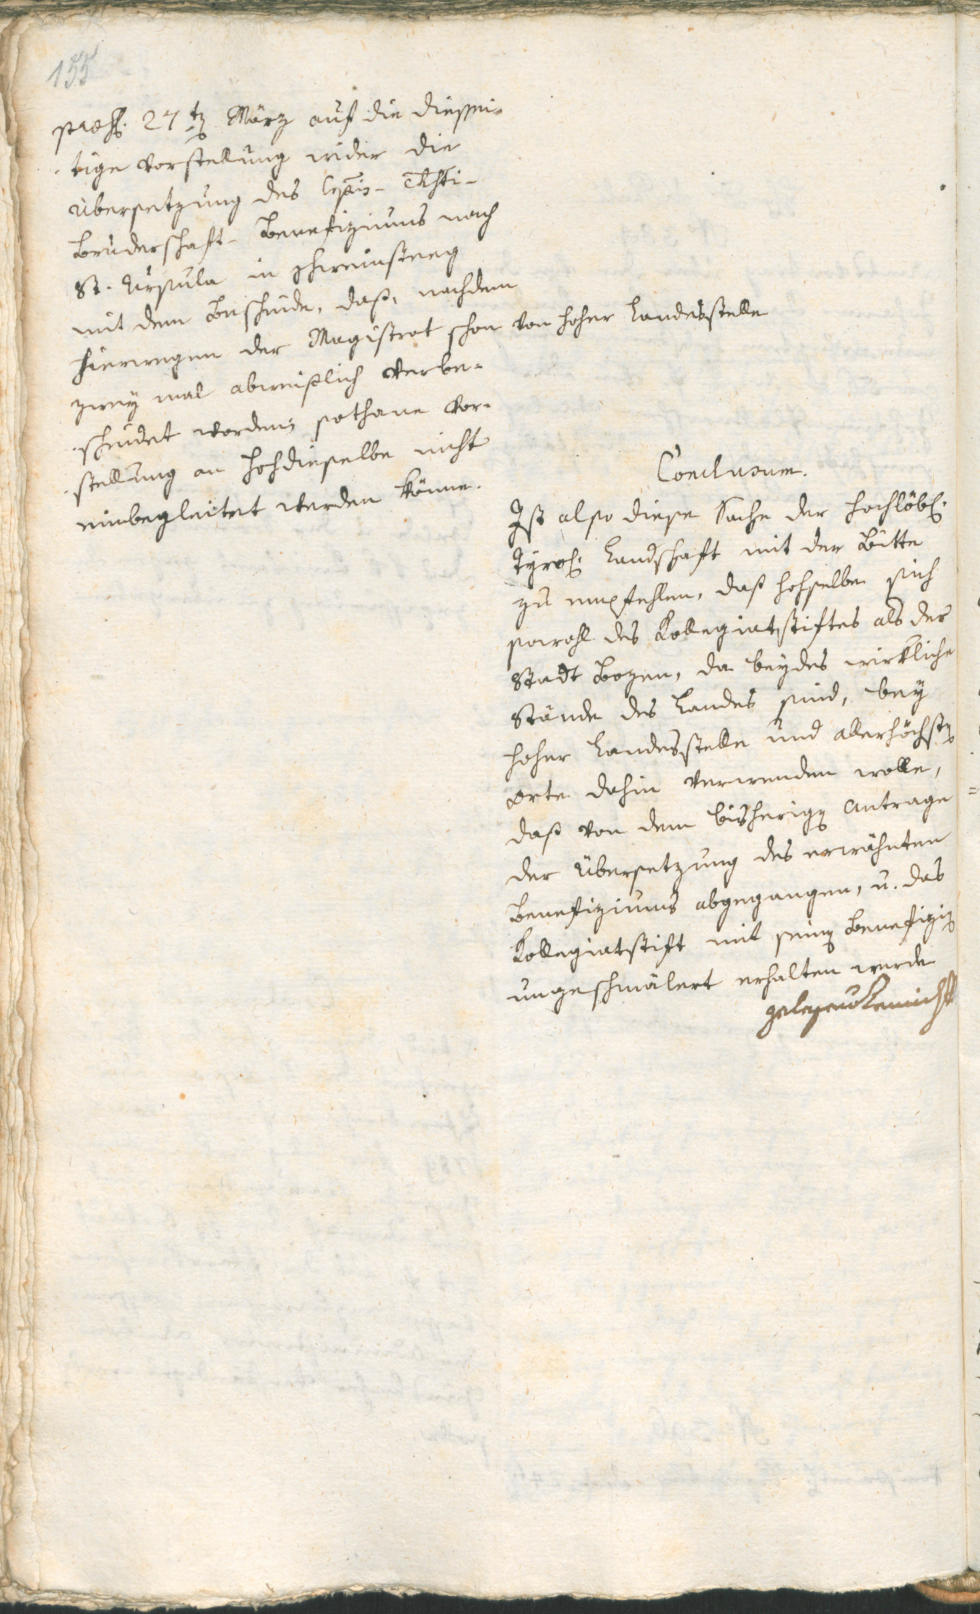 155
praes. 27tz März auf die diessei-
tige Vorstellung wider die
Übersetzung des Corporis-Christi-
Bruderschaft-Benefiziums nach
St. Ursula in
mit dem Bescheide, daß, nachdem
hierwegen der Magistrat schon von hoher Landesstelle
zwey mal abweislich verbe-
scheidet worden, sothane Vor-
stellung an hochdieselbe nicht
einbegleitet werden könne.
Conclusum.
Ist also diese Sache der hochlöbl.
Tyrol. Landschaft mit der Bitte
zu empfehlen, daß hochselbe sich
sowohl des Kollegiatstiftes als der
Stadt Bozen, da beydes wirkliche
Stände des Landes sind, bey
hoher Landesstelle und allerhöchsten
Orte dahin verwenden wolle,
daß von dem bisherigen Antrage
der Übersetzung des erwähnten
Benefiziums abgegangen, u. das
Kollegiatstift mit seinen Benefizien
ungeschmälert erhalten werde